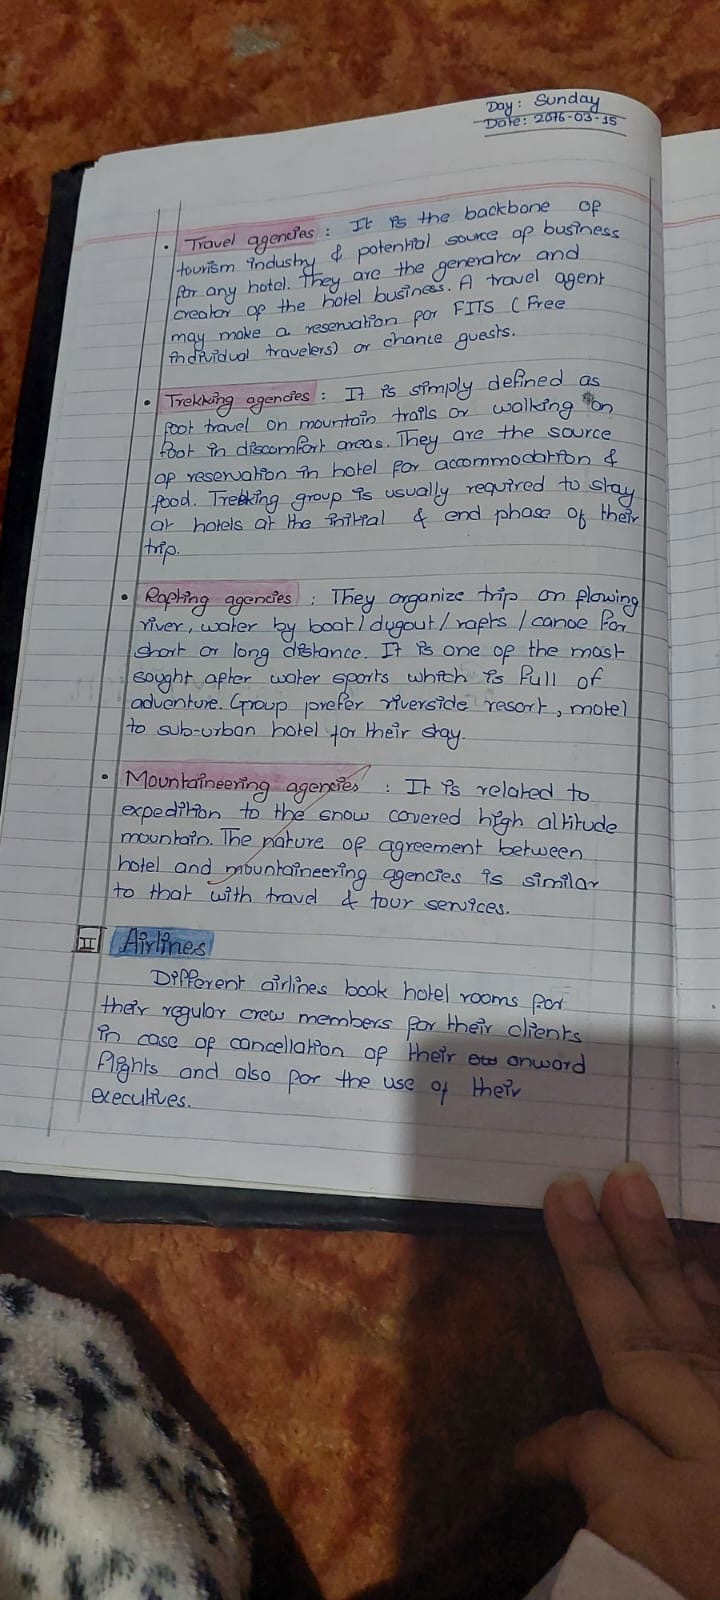 Day: Sunday
Date: 2076-03-15
• Travel agencies : It is the backbone of
tourism industry & potential source of business
for any hotel. They are the generator and
creator of the hotel business. A travel agent
may make a reservation for FITS (Free
individual travelers) or chance guests.
• Trekking agencies : It is simply defined as
foot travel on mountain trails or walking on
foot in discomfort areas. They are the source
of reservation in hotel for accommodation &
food. Trekking group is usually required to stay
at hotels at the initial & end phase of their
trip.
• Rafting agencies : They organize trip on flowing
river, water by boat/dugout/rafts/canoe for
short or long distance. It is one of the most
sought after water sports which is full of
adventure. Group prefer riverside resort, motel
to sub-urban hotel for their stay.
• Mountaineering agencies : It is related to
expedition to the snow covered high altitude
mountain. The nature of agreement between
hotel and mountaineering agencies is similar
to that with travel & tour services.
II Airlines
Different airlines book hotel rooms for
their regular crew members for their clients
in case of cancellation of their onward
flights and also for the use of their
executives.